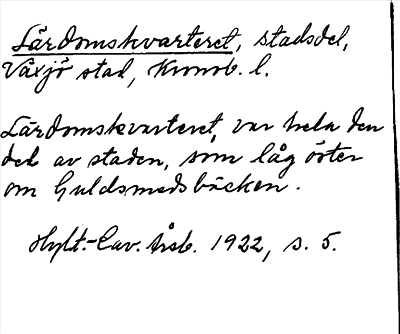 Lärdomskvarteret, stadsdel,
Växjö stad, Kronob. l.
Lärdomskvarteret, var hela den
del av staden, som låg öster
om Guldsmedsbäcken.
Hylt.-Cav. årsb. 1922, s. 5.